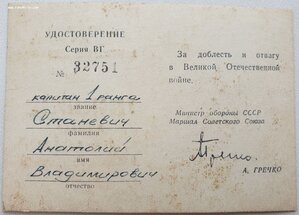 УДОСТОВЕРЕНИЕ
Серия ВГ
№ 32751
капитан 1 ранга
звание
Станевич
фамилия
Анатолий
имя
Владимирович
отчество
За доблесть и отвагу
в Великой Отечественной
войне.
Министр обороны СССР
Маршал Советского Союза
А. ГРЕЧКО